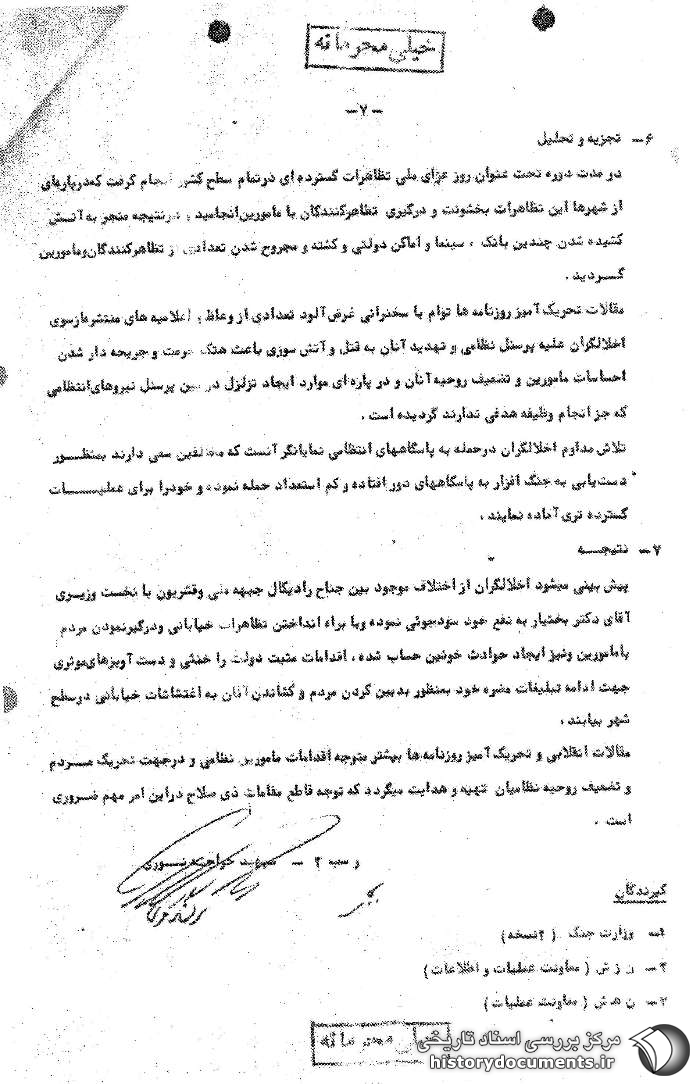 خیلی محرمانه
-۷-
۶- تجزیه و تحلیل
در مدت دوره تحت عنوان روز عزای ملی تظاهرات گسترده ای درتمام سطح کشور انجام گرفت که درپاره‌ای
از شهرها این تظاهرات بخشونت و درگیری تظاهرکنندگان با مامورین انجامید و درنتیجه منجر به آتش
کشیده شدن چندین بانک ، سینما و اماکن دولتی و کشته و مجروح شدن تعدادی از تظاهرکنندگان و مامورین
گردید .
مقالات تحریک آمیز روزنامه ها توام با سخنرانی غرض آلود تعدادی از وعاظ و اعلامیه های منتشره از سوی
اخلالگران علیه پرسنل نظامی و تهدید آنان به قتل و آتش سوزی باعث هتک حرمت و جریحه دار شدن
احساسات مامورین و تضعیف روحیه آنان و در پاره ای موارد ایجاد تزلزل در بین پرسنل نیروهای انتظامی
که جز انجام وظیفه هدفی ندارند گردیده است .
تلاش مداوم اخلالگران درحمله به پاسگاههای انتظامی نمایانگر آنست که مخالفین سعی دارند بمنظور
دست‌یابی به جنگ افزار به پاسگاههای دور افتاده و کم استعداد حمله نموده و خودرا برای عملیات
گسترده تری آماده نمایند .
۷- نتیجه
پیش بینی میشود اخلالگران از اختلاف موجود بین جناح رادیکال جبهه ملی وقشریون با نخست وزیری
آقای دکتر بختیار به نفع خود سودجوئی نموده وبا براه انداختن تظاهرات خیابانی ودرگیرنمودن مردم
بامامورین ونیز ایجاد حوادث خونین حساب شده ، اقدامات مثبت دولت را خنثی و دست آویزهای موثری
جهت ادامه تبلیغات مضره خود بمنظور بدبین کردن مردم و کشاندن آنان به اغتشاشات خیابانی درسطح
شهر بیابند .
مقالات انقلابی و تحریک آمیز روزنامه ها بیشتر متوجه اقدامات مامورین نظامی و درجهت تحریک مردم
و تضعیف روحیه نظامیان تهیه و هدایت میگردد که توجه قاطع مقامات ذی صلاح دراین امر مهم ضروری
است .
سپهبد خواجه نوری
گیرندگان
۱- وزارت جنگ ( ۲نسخه)
۲- ن ز ش ( معاونت عملیات و اطلاعات)
۳- ن هـ ش ( معاونت عملیات)
خیلی محرمانه
مرکز بررسی اسناد تاریخی
historydocuments.ir